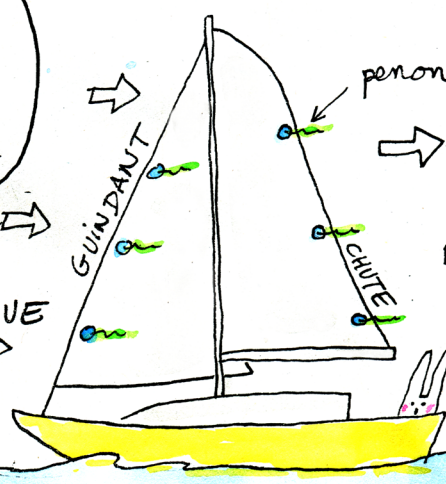 penon
GUINDANT
CHUTE
UE